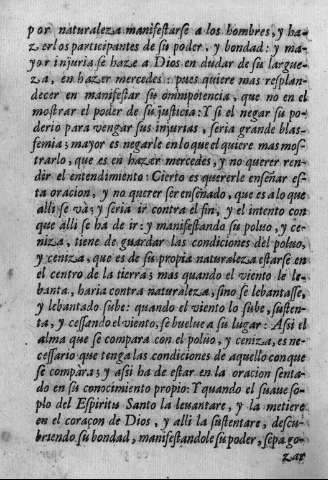 por naturaleza manifestarse a los hombres, y ha-
zerlos participantes de su poder, y bondad: y ma-
yor injuria se haze a Dios en dudar de su largue-
za, en hazer mercedes: pues quiere mas resplan-
decer en manifestar su omnipotencia, que no en el
mostrar el poder de su justicia: Y si el negar su po-
derio para vengar sus injurias, seria grande blas-
femia; mayor es negarle en lo que el quiere mas mos-
trarlo, que es en hazer mercedes, y no querer ren-
dir el entendimiento: Cierto es quererle enseñar es-
ta oracion, y no querer ser enseñado, que es a lo que
alli se và; y seria ir contra el fin, y el intento con
que alli se ha de ir: y manifestando su poluo, y ce-
niza, tiene de guardar las condiciones del poluo,
y ceniza, que es de su propia naturaleza estarse en
el centro de la tierra; mas quando el viento le le-
banta, haria contra naturaleza, sino se lebantasse,
y lebantado sube: quando el viento lo sube, susten-
ta, y cessando el viento, se buelue a su lugar: Assi el
alma que se compara con el poluo, y ceniza, es ne-
cessario que tenga las condiciones de aquello con que
se compara; y assi ha de estar en la oracion senta-
do en su conocimiento propio: Y quando el suaue so-
plo del Espiritu Santo la leuantare, y la metiere
en el coraçon de Dios, y alli la sustentare, descu-
briendo su bondad, manifestandole su poder, sepa go-
zar